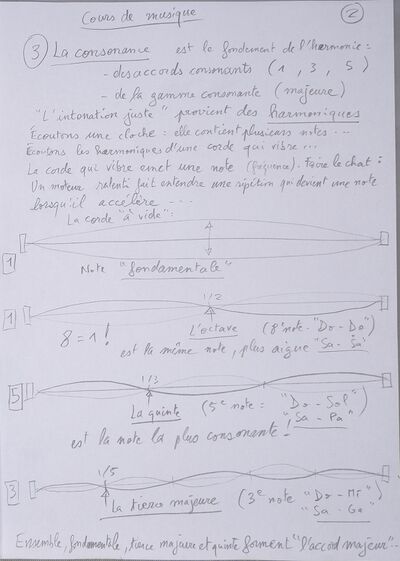 Cours de musique
2
3 La consonance est le fondement de l'harmonie :
- des accords consonants ( 1 , 3 , 5 )
- de la gamme consonante ( majeure )
"L'intonation juste" provient des harmoniques
Écoutons une cloche : elle contient plusieurs notes ...
Écoutons les harmoniques d'une corde qui vibre ...
La corde qui vibre émet une note (fréquence). Faire le chat :
Un moteur ralenti fait entendre une répétition qui devient une note
lorsqu'il accélère ...
La corde "à vide" :
1
Note "fondamentale"
1/2
1
8 = 1 ! L'octave (8e note - "Do - Do")
est la même note, plus aigue "Sa - Sa"
1/3
5
La quinte (5e note : "Do - Sol")
"Sa - Pa"
est la note la plus consonante !
1/5
3
La tierce majeure (3e note "Do - Mi")
"Sa - Ga"
Ensemble, fondamentale, tierce majeure et quinte forment "l'accord majeur"